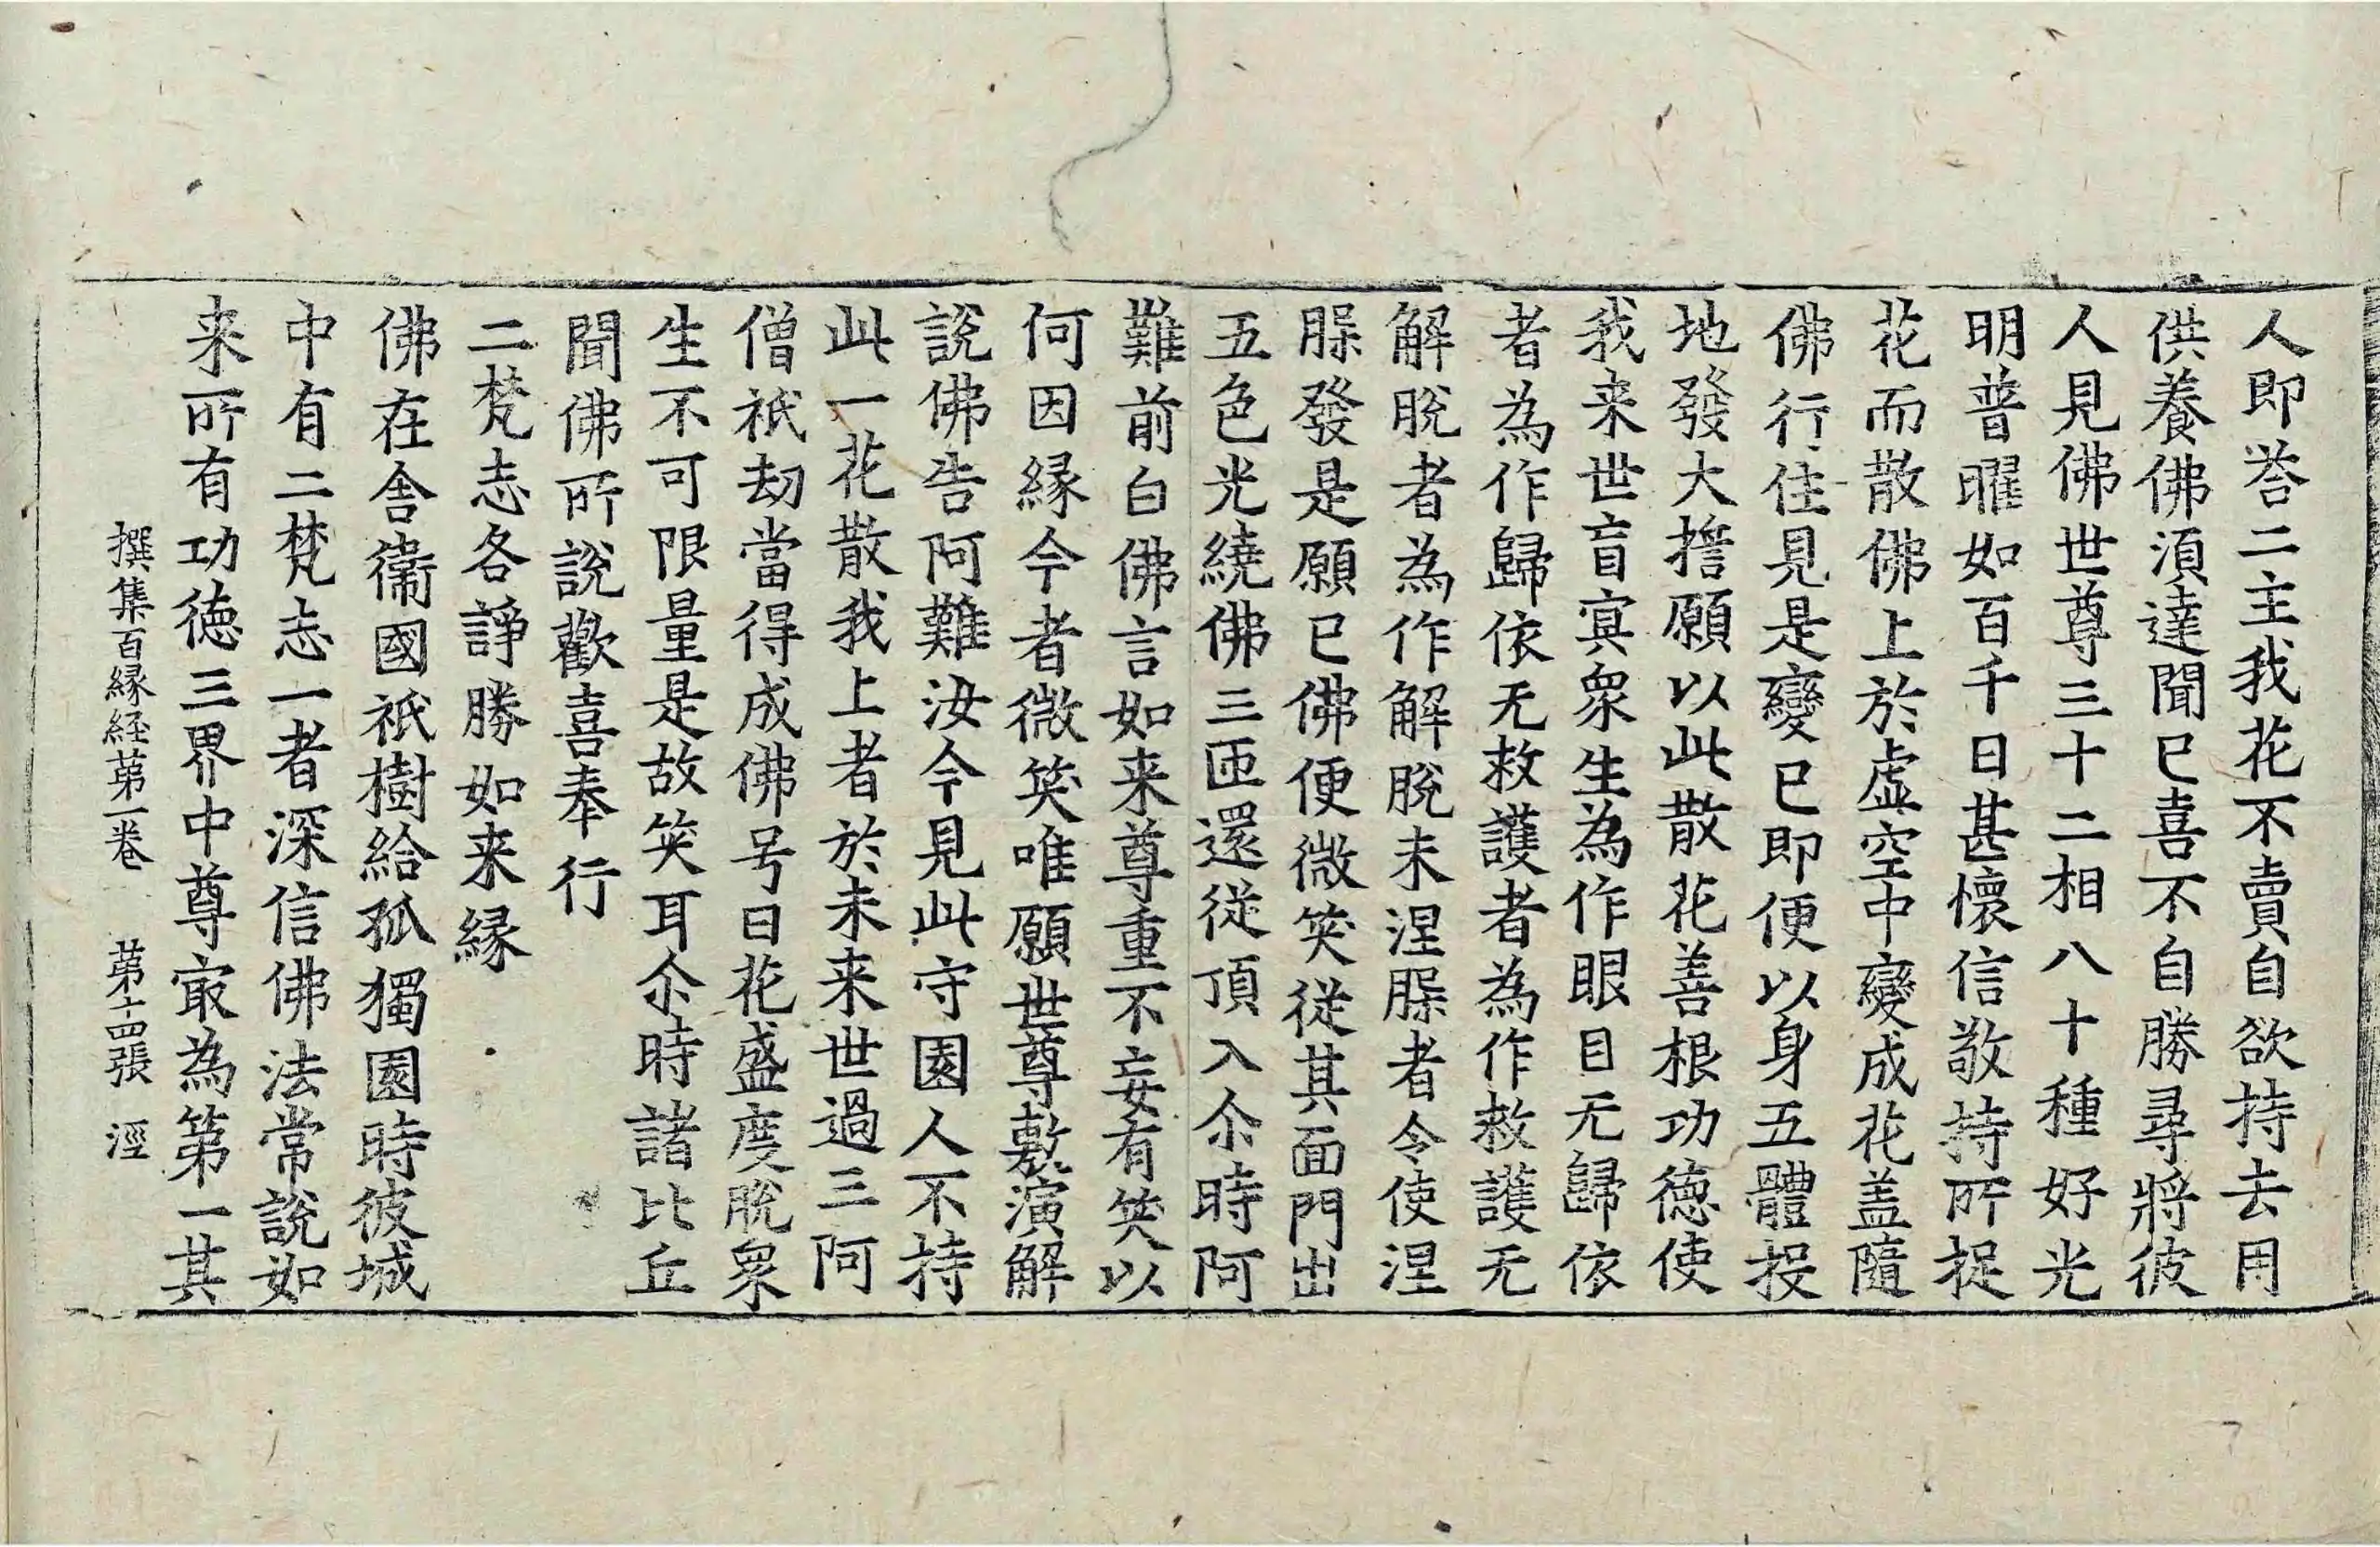 人即荅二主我花不賣自欲持去用
供養佛湏達聞已喜不自勝尋將彼
人見佛世尊三十二相八十種好光
明普曜如百千日甚懷信敬持所捉
花而散佛上於虛空中變成花盖隨
佛行住見是變已即便以身五體投
地發大擔願以此散花善根功德使
我来世盲㝠衆生為作眼目无歸依
者為作歸依无救護者為作救護无
解脫者為作解脫未涅䐗者令使涅
䐗發是願已佛便微笑從其面門出
五色光繞佛三匝還從頂入尒時阿
難前白佛言如来尊重不妄有笑以
何因縁今者微笑唯願世尊敷演解
說佛告阿難汝今見此守園人不持
此一花散我上者於未来世過三阿
僧祇劫當得成佛号曰花盛度脫衆
生不可限量是故笑耳尒時諸比丘
聞佛所說歡喜奉行
二梵志各諍勝如来縁
佛在舍衞國祇樹給孤獨園時彼城
中有二梵志一者深信佛法常說如
来所有功德三界中尊㝡為第一其
撰集百縁経苐一卷　苐十四張　涇